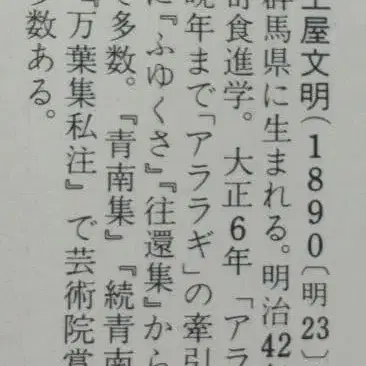 土屋文明(1890〔明23〕
群馬県に生まれる。明治42
寄食進学。大正6年「アラ
晩年まで「アララギ」の牽引
に『ふゆくさ』『往還集』から
で多数。『青南集』『続青南
『万葉集私注』で芸術院賞
多数ある。